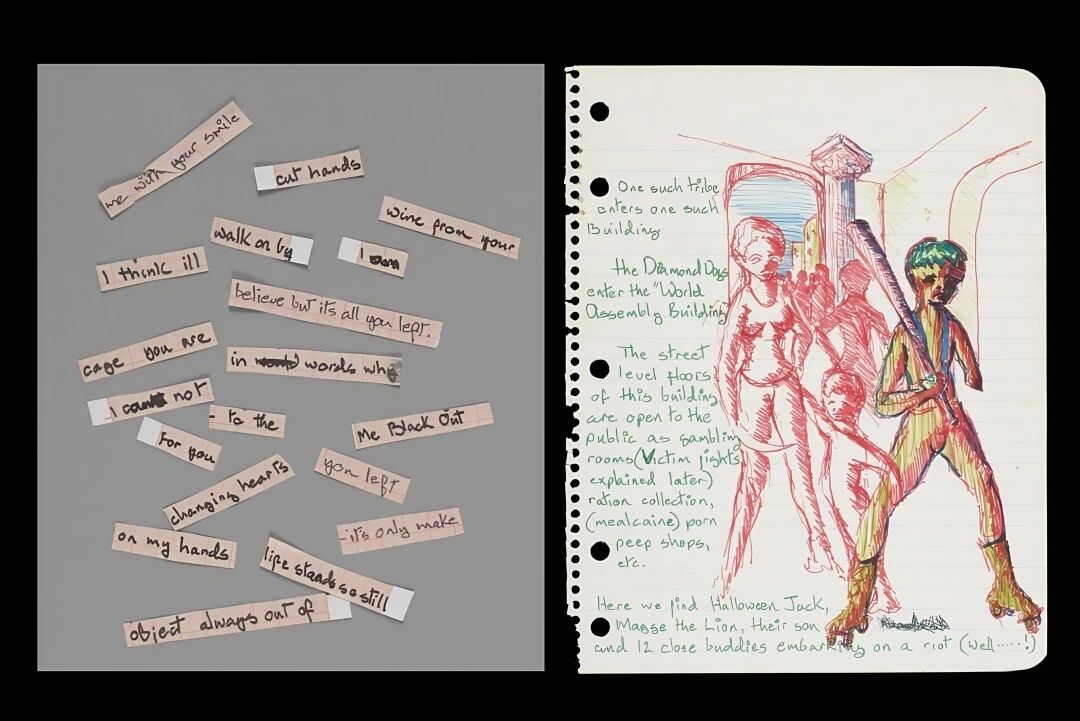 me with your smile
cut hands
wine from your
walk on by
I
I think ill
believe but its all you left.
cage you are
in words
I not
- to the
Me Black Out
For you
you left
changing hearts
- it's only make
on my hands
life stands so still
object always out of
One such tribe
enters one such
Building
the Diamond Dogs
enter the "World
Assembly Building"
The street
level floors
of this building
are open to the
public as gambling
rooms (Victim fights
explained later)
ration collection,
(mealcaine) porn
peep shops,
etc.
Here we find Halloween Jack,
Magge the Lion, their son
and 12 close buddies embarking on a riot (Well.....!)